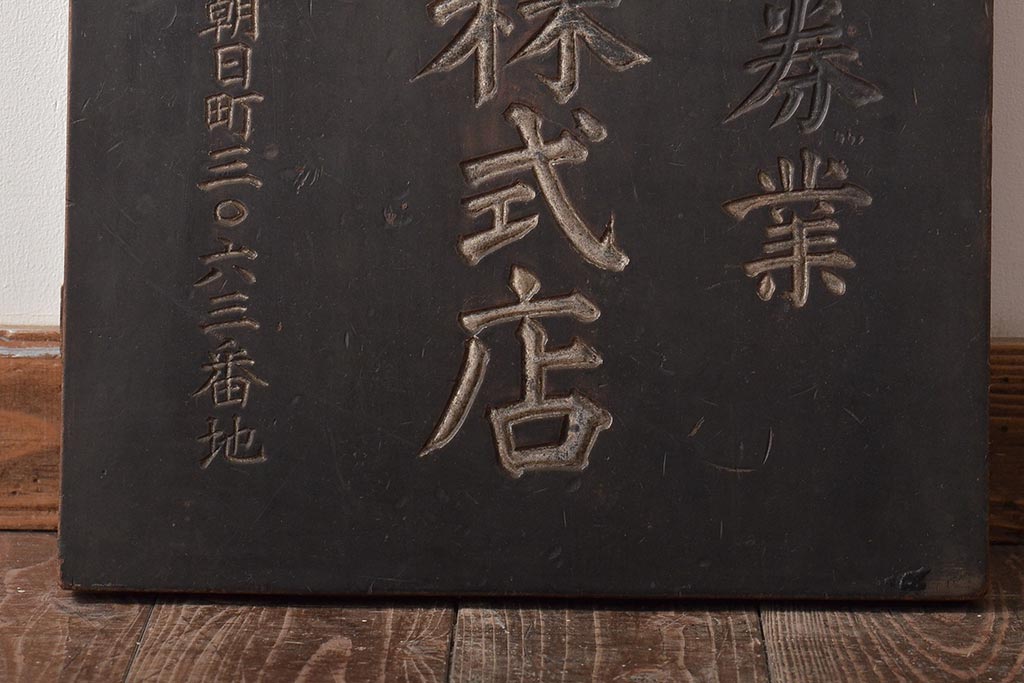 券業
株式店
朝日町三〇六三番地